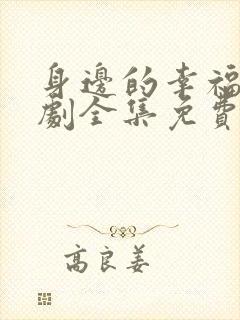 身邊的幸福
劇全集免費
高良姜